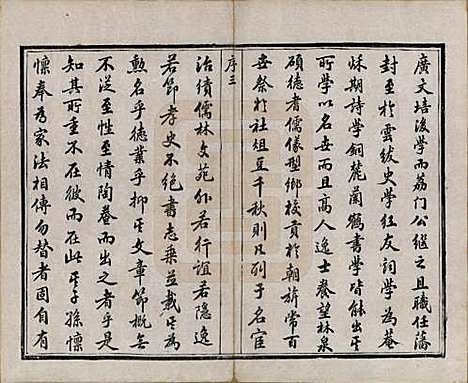 廣文培後學而荔门公繼之且職任藩
封至於雲紱史學紅友詞學為菴
烁期詩學銅麓蘭鶴書學皆能出其
所學以名世而且高人逸士養望林泉
碩德耆儒儀型鄉校貢於朝旂常百
世祭於社俎豆千秋則凡列于名宦
序三
治績儒林文苑外若行誼若隱逸
若節孝史不絕書志乘並載其為
勲名乎德業乎抑其文章節概無
不從至性至情陶養而出之者乎是
知其所重不在彼而在此其子孫懍
懍奉為家法相傳勿替者固自有